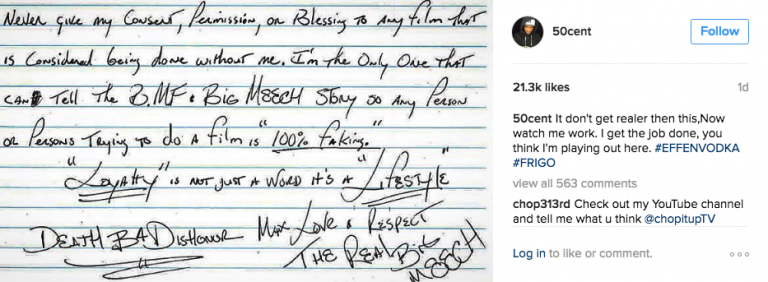 Never give my Consent, Permission, or Blessing To Any film That
is Considered being done without me. I'm the Only One That
can Tell The B.M.F & Big MEECH Story so Any Person
or Persons Trying To do A film is "100% faking."
"Loyalty" is not just a word it's a "Lifestyle"
DEATH B4 DISHONOR Max Love & RESPECT
THE REAL BIG
MEECH
50cent
Follow
21.3k likes
1d
50cent It don't get realer then this,Now
watch me work. I get the job done, you
think I'm playing out here. #EFFENVODKA
#FRIGO
view all 563 comments
chop313rd Check out my YouTube channel
and tell me what u think @chopitupTV
Log in to like or comment.